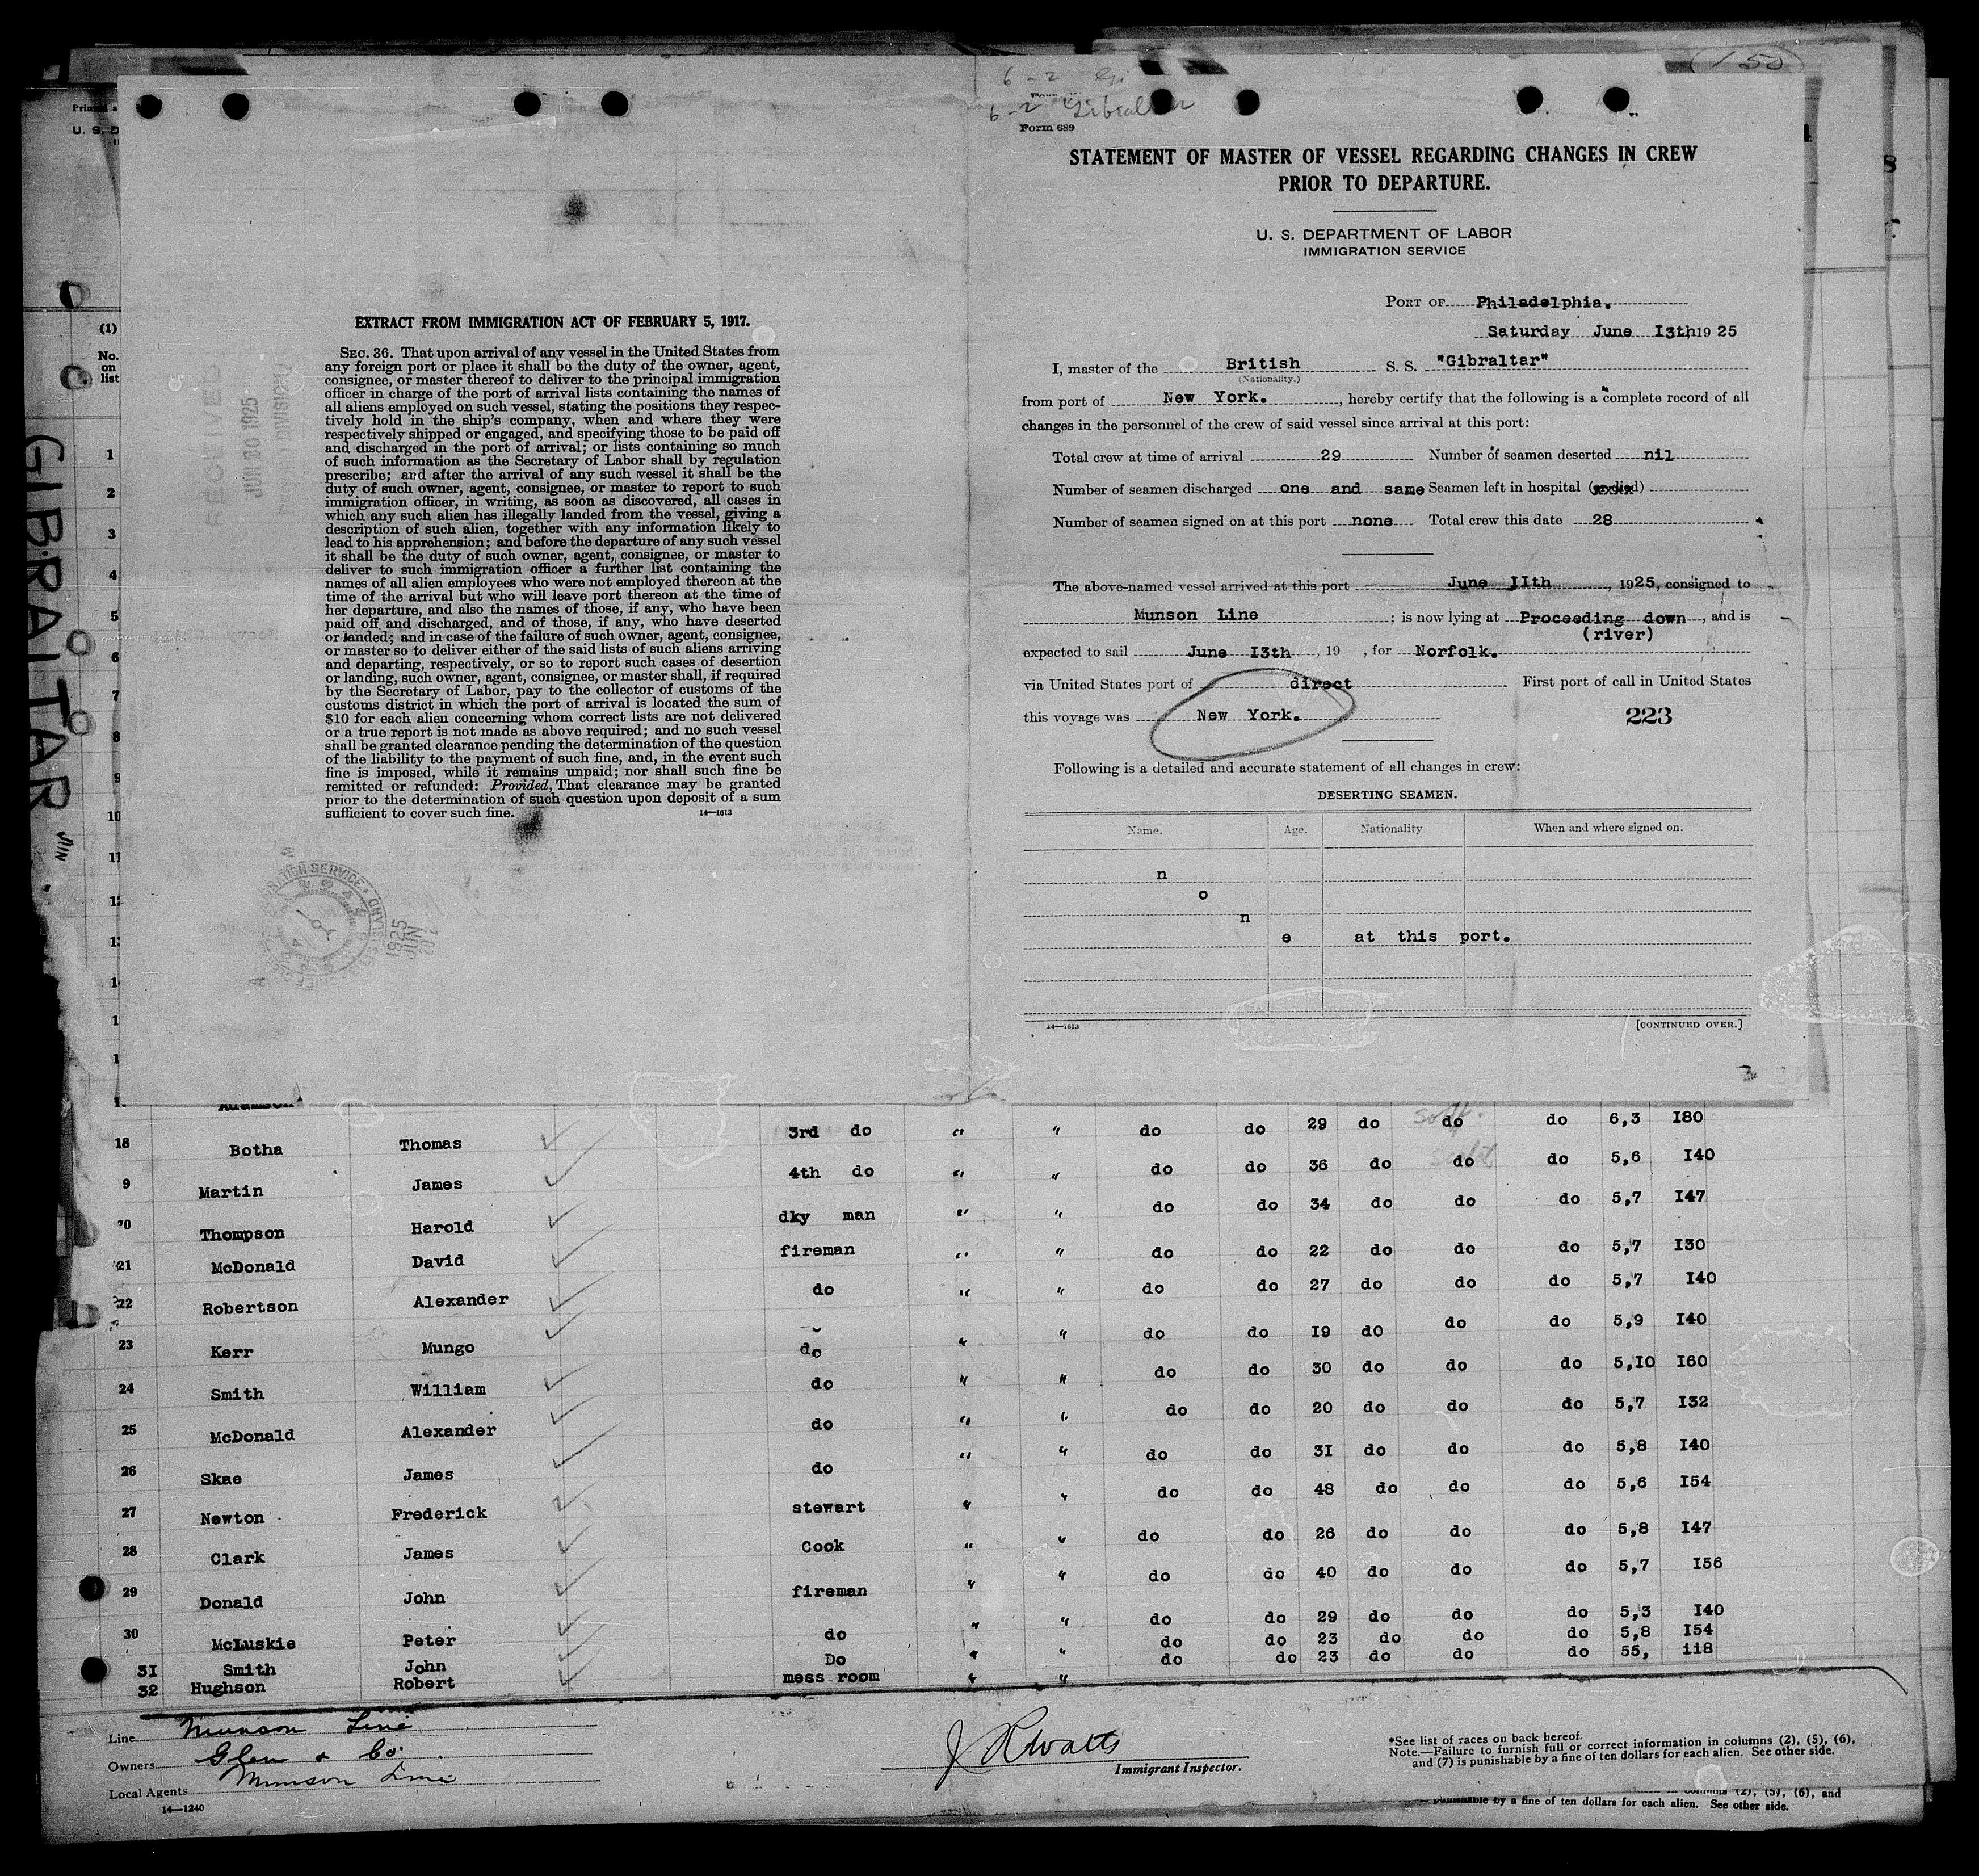 GIBRALTAR
(1)
No.
on
list
RECEIVED
JUN 20 1925
DIVISION
EXTRACT FROM IMMIGRATION ACT OF FEBRUARY 5, 1917.
SEC. 36. That upon arrival of any vessel in the United States from
any foreign port or place it shall be the duty of the owner, agent,
consignee, or master thereof to deliver to the principal immigration
officer in charge of the port of arrival lists containing the names of
all aliens employed on such vessel, stating the positions they respec-
tively hold in the ship's company, when and where they were
respectively shipped or engaged, and specifying those to be paid off
and discharged in the port of arrival; or lists containing so much
of such information as the Secretary of Labor shall by regulation
prescribe; and after the arrival of any such vessel it shall be the
duty of such owner, agent, consignee, or master to report to such
immigration officer, in writing, as soon as discovered, all cases in
which any such alien has illegally landed from the vessel, giving a
description of such alien, together with any information likely to
lead to his apprehension; and before the departure of any such vessel
it shall be the duty of such owner, agent, consignee, or master to
deliver to such immigration officer a further list containing the
names of all alien employees who were not employed thereon at the
time of the arrival but who will leave port thereon at the time of
her departure, and also the names of those, if any, who have been
paid off and discharged, and of those, if any, who have deserted
or landed; and in case of the failure of such owner, agent, consignee,
or master so to deliver either of the said lists of such aliens arriving
and departing, respectively, or so to report such cases of desertion
or landing, such owner, agent, consignee, or master shall, if required
by the Secretary of Labor, pay to the collector of customs of the
customs district in which the port of arrival is located the sum of
$10 for each alien concerning whom correct lists are not delivered
or a true report is not made as above required; and no such vessel
shall be granted clearance pending the determination of the question
of the liability to the payment of such fine, and, in the event such
fine is imposed, while it remains unpaid; nor shall such fine be
remitted or refunded: Provided, That clearance may be granted
prior to the determination of such question upon deposit of a sum
sufficient to cover such fine.
14—1613
1925
JUN
20
6-2 Gi
6-2 Gibraltar
150
Form 689
STATEMENT OF MASTER OF VESSEL REGARDING CHANGES IN CREW
PRIOR TO DEPARTURE.
U. S. DEPARTMENT OF LABOR
IMMIGRATION SERVICE
PORT OF Philadelphia.
Saturday June I3th, 1925
I, master of the British S. S. "Gibraltar"
(Nationality.)
from port of New York. , hereby certify that the following is a complete record of all
changes in the personnel of the crew of said vessel since arrival at this port:
Total crew at time of arrival 29 Number of seamen deserted nil
Number of seamen discharged one and same Seamen left in hospital (or died)
Number of seamen signed on at this port none Total crew this date 28
The above-named vessel arrived at this port June IIth , 1925, consigned to
Munson Line ; is now lying at Proceeding down , and is
(river)
expected to sail June I3th , 19 , for Norfolk.
via United States port of direct First port of call in United States
this voyage was New York. 223
Following is a detailed and accurate statement of all changes in crew:
DESERTING SEAMEN.
Name. Age. Nationality When and where signed on.
n
o
n
e at this port.
14—1613 [CONTINUED OVER.]
Adamson
18 Botha Thomas 3rd do " " do do 29 do do do 6,3 I80
9 Martin James 4th do " " do do 36 do do do 5,6 I40
20 Thompson Harold dky man " " do do 34 do do do 5,7 I47
21 McDonald David fireman " " do do 22 do do do 5,7 I30
22 Robertson Alexander do " " do do 27 do do do 5,7 I40
23 Kerr Mungo do " " do do I9 do do do 5,9 I40
24 Smith William do " " do do 30 do do do 5,I0 I60
25 McDonald Alexander do " " do do 20 do do do 5,7 I32
26 Skae James do " " do do 3I do do do 5,8 I40
27 Newton Frederick stewart " " do do 48 do do do 5,6 I54
28 Clark James Cook " " do do 26 do do do 5,8 I47
29 Donald John fireman " " do do 40 do do do 5,7 I56
30 McLuskie Peter do " " do do 29 do do do 5,3 I40
3I Smith John Do " " do do 23 do do do 5,8 I54
32 Hughson Robert mess room " " do do 23 do do do 55, 118
Line Munson Line
Owners Glen & Co.
Local Agents Munson Line
14—1240
J R Watts
Immigrant Inspector.
*See list of races on back hereof.
Note.—Failure to furnish full or correct information in columns (2), (5), (6),
and (7) is punishable by a fine of ten dollars for each alien. See other side.
columns (2), (5), (6), and
punishable by a fine of ten dollars for each alien. See other side.